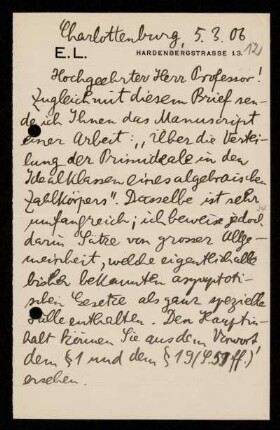 Charlottenburg, 5. 3. 06
E. L.
HARDENBERGSTRASSE 13.
Hochgeehrter Herr Professor!
Zugleich mit diesem Brief sen-
de ich Ihnen das Manuscript
einer Arbeit: „Über die Vertei-
lung der Primideale in den
Idealklassen eines algebraischen
Zahlkörpers". Dasselbe ist sehr
umfangreich; ich beweise jedoch
darin Sätze von grosser Allge-
meinheit, welche eigentlich alle
bisher bekannten asymptoti-
schen Gesetze als ganz spezielle
Fälle enthalten. Den Hauptin-
halt können Sie aus dem Vorwort,
dem § 1 und dem § 19 (S. 51 ff.)
ersehen.